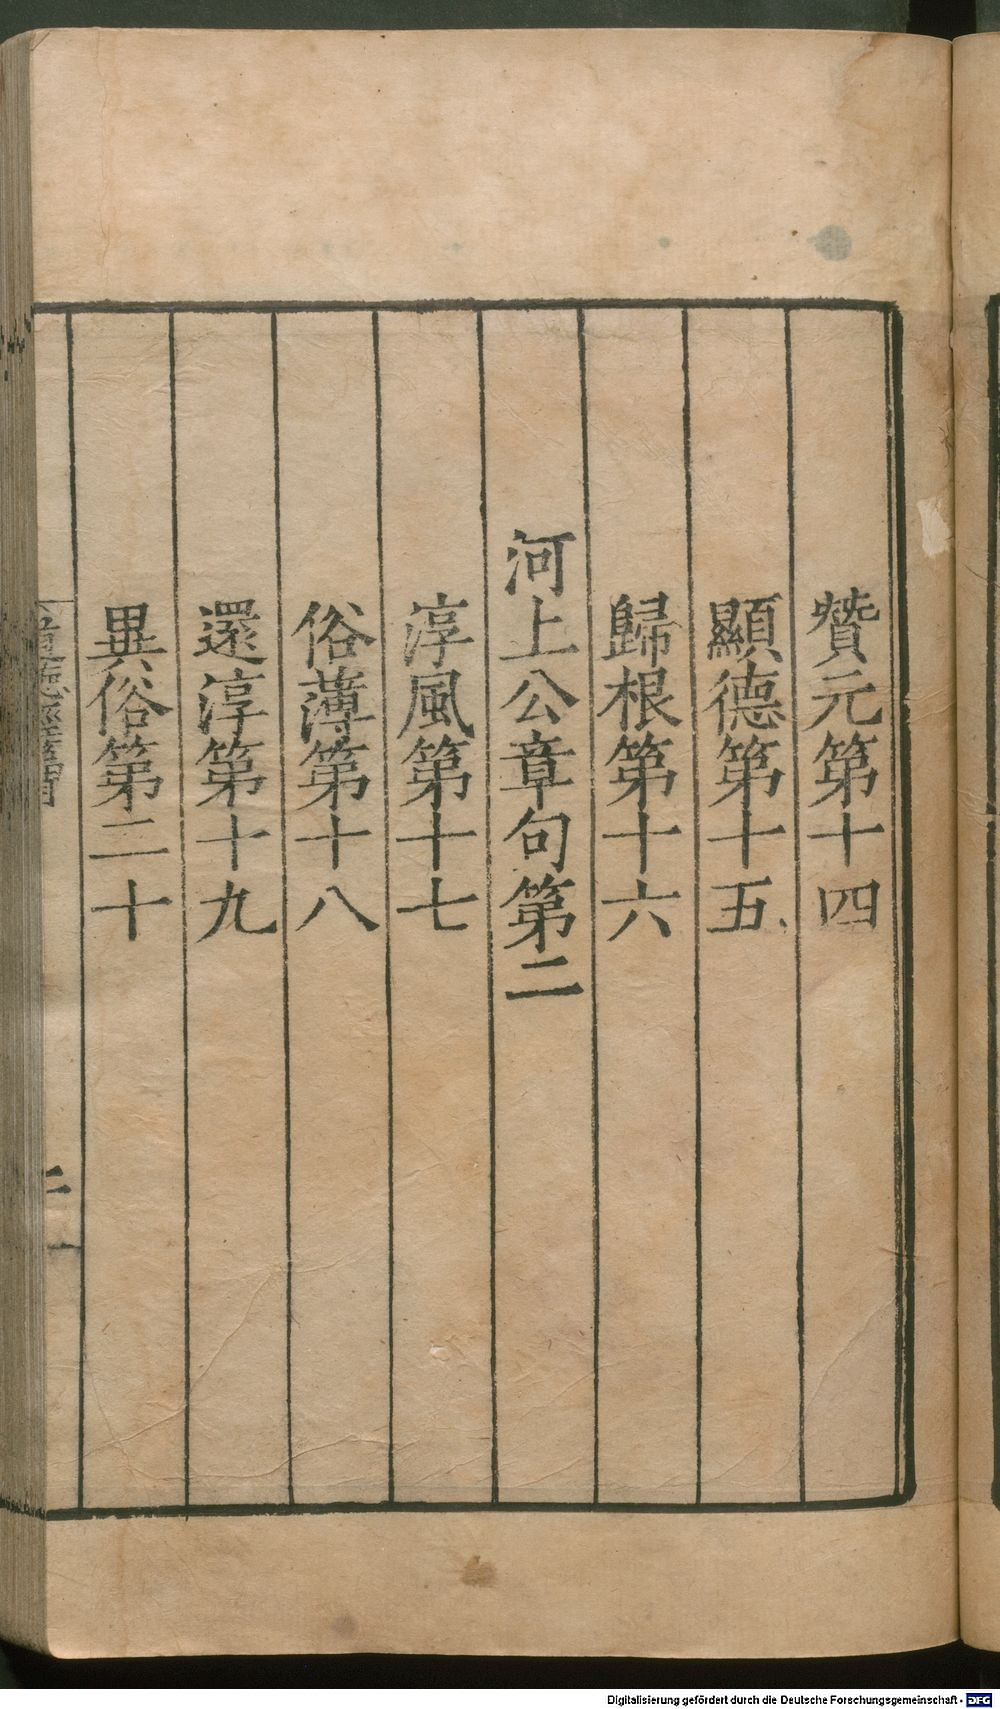 贊元第十四
顯德第十五
歸根第十六
河上公章句第二
淳風第十七
俗薄第十八
還淳第十九
異俗第二十
道德經
二
Digitalisierung gefördert durch die Deutsche Forschungsgemeinschaft - DFG